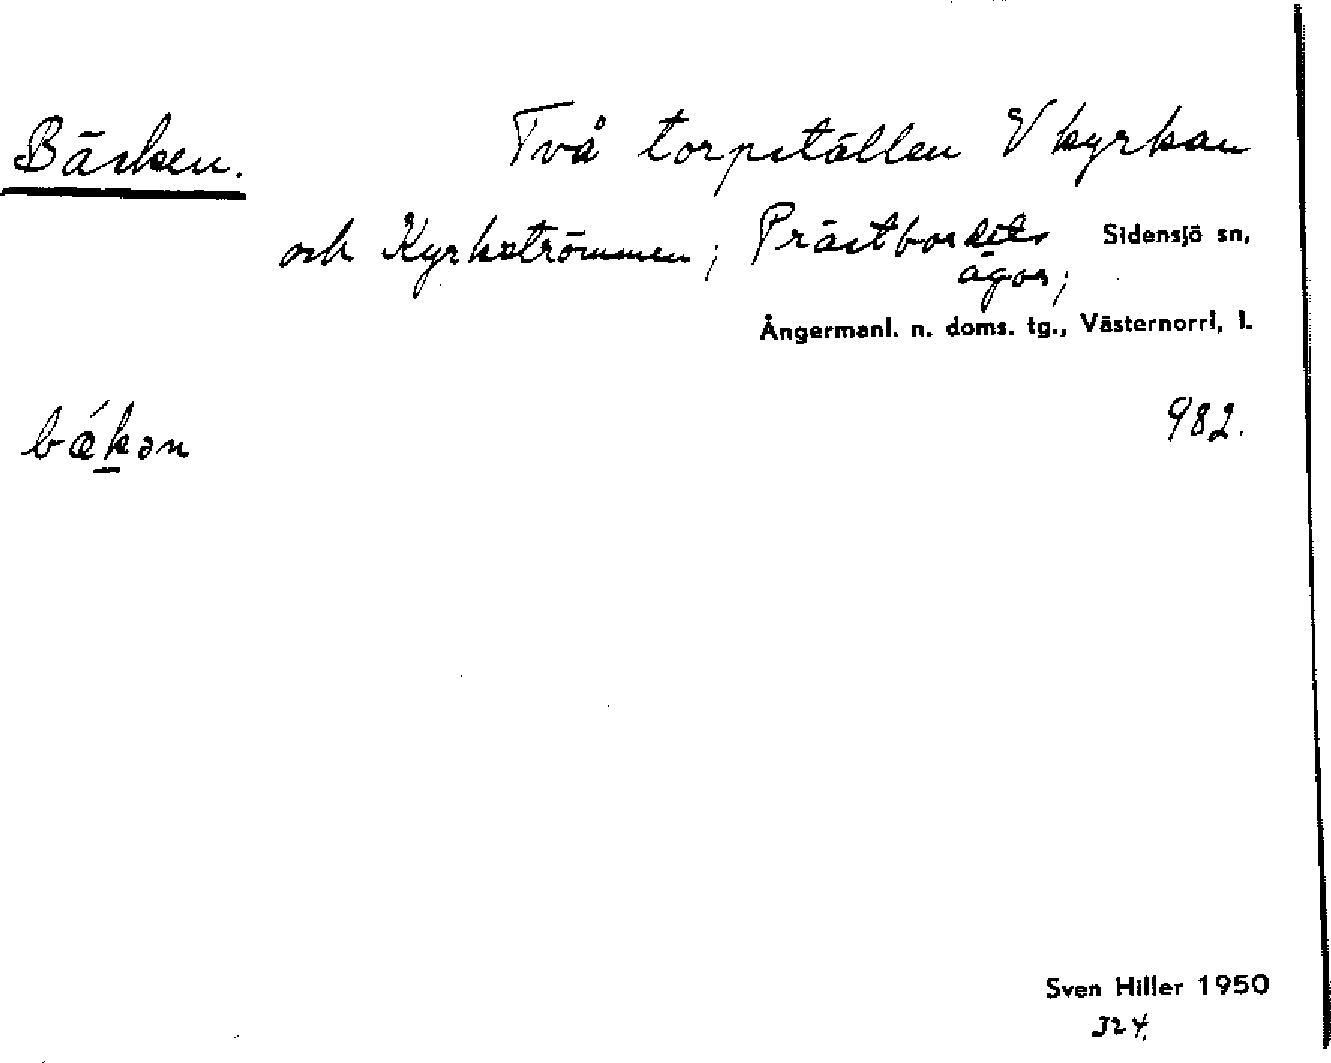 Bäcken. Två torpställen V kyrkan
och Kyrkströmmen; Prästbordets Sidensjö sn,
ägor;
Ångermanl. n. doms. tg., Västernorrl. l.
982.
bǽk̲ən
Sven Hiller 1950
324.